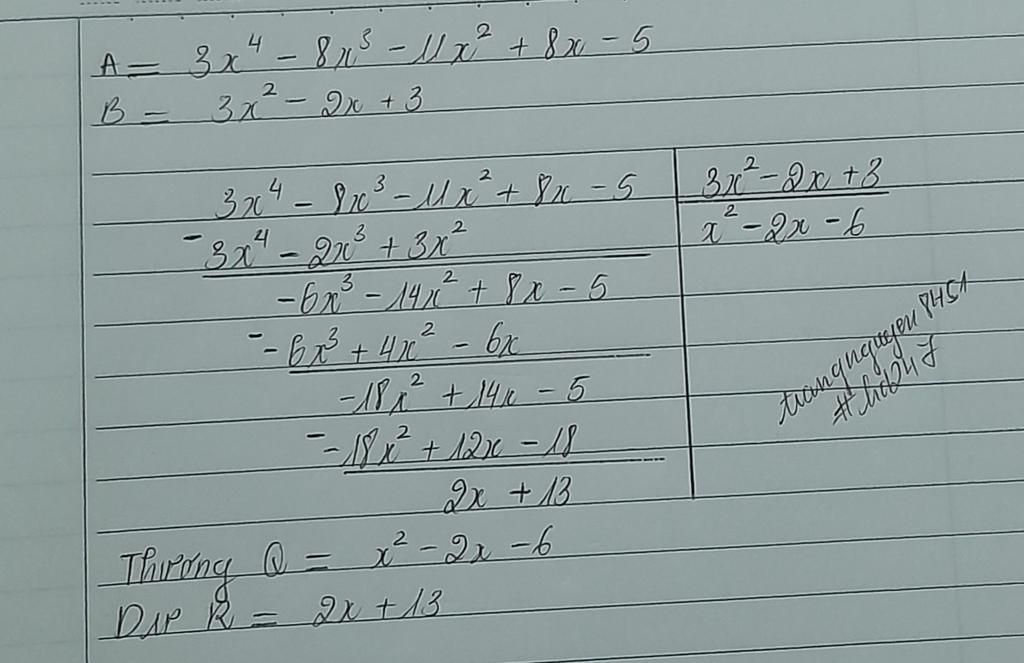 A = 3x⁴ - 8x³ - 11x² + 8x - 5
B = 3x² - 2x + 3
3x⁴ - 8x³ - 11x² + 8x - 5 | 3x² - 2x + 3
- 3x⁴ - 2x³ + 3x² | x² - 2x - 6
-6x³ - 14x² + 8x - 5
- -6x³ + 4x² - 6x
-18x² + 14x - 5
- -18x² + 12x - 18
2x + 13
trangnguyen8451
#hd247
Thương Q = x² - 2x - 6
Dư R = 2x + 13